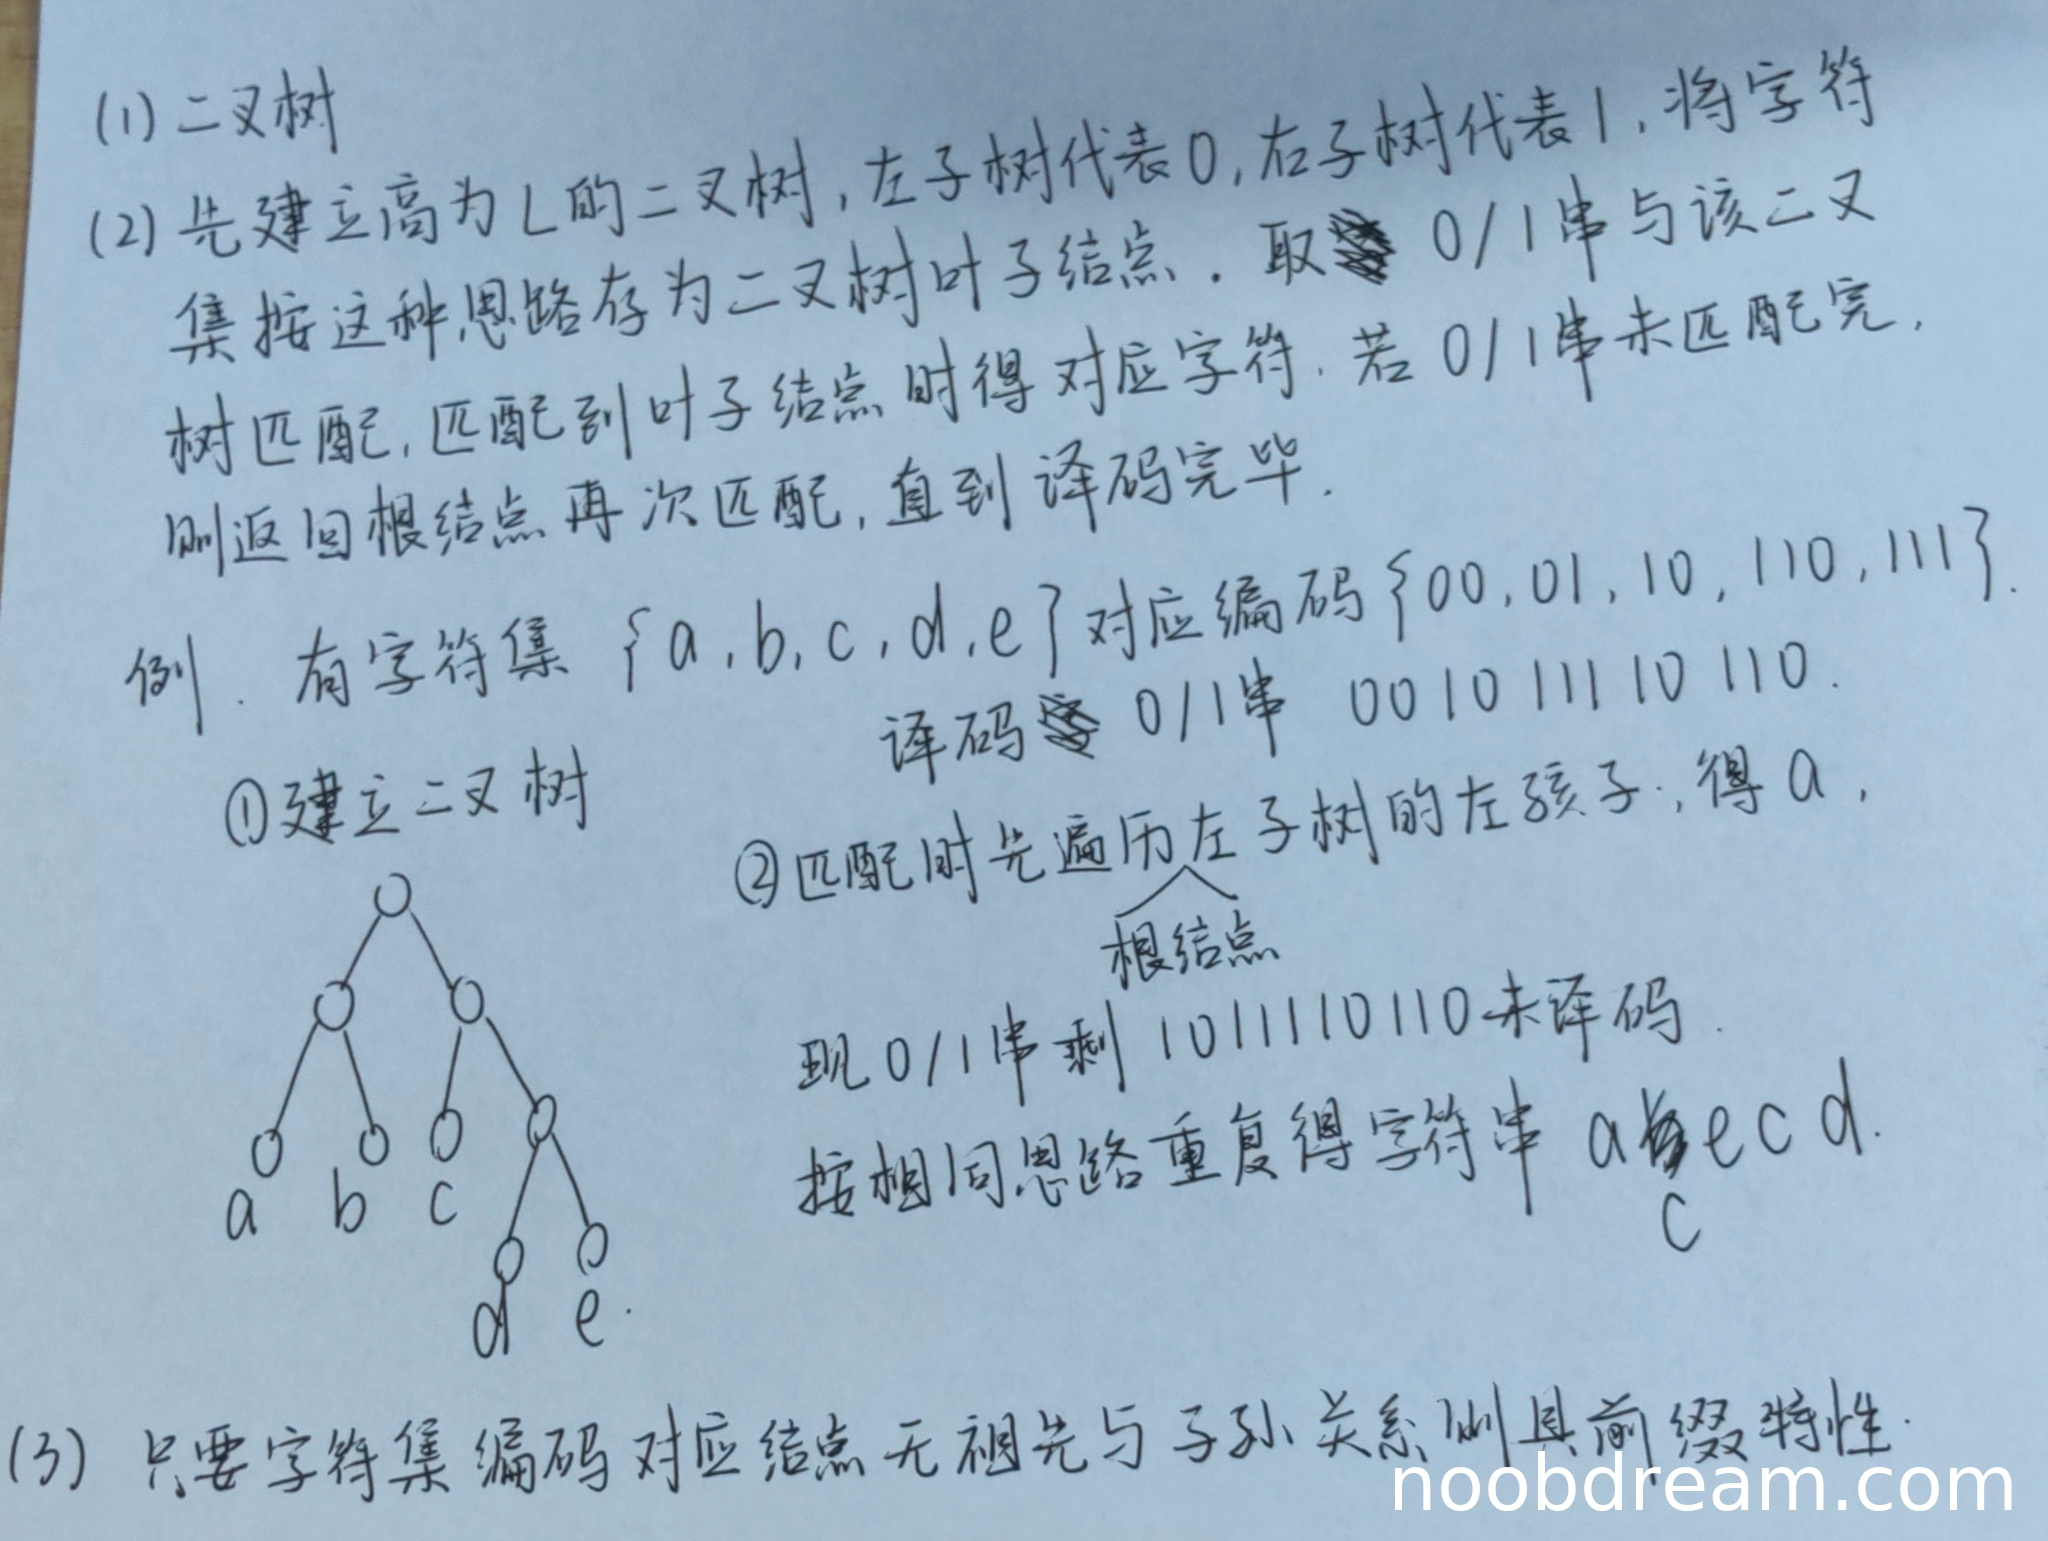 (1) 二叉树
(2) 先建立高为L的二叉树,左子树代表0,右子树代表1.将字符
集按这种思路存为二叉树叶子结点.取 0/1串与该二叉
树匹配,匹配到叶子结点时得对应字符.若0/1串未匹配完,
则返回根结点再次匹配,直到译码完毕.
例. 有字符集 {a,b,c,d,e}对应编码{00,01,10,110,111}.
译码 0/1串 0010 111 10 110.
①建立二叉树
②匹配时先遍历左子树的左孩子,得a,
根结点
现0/1串剩 1011110110未译码.
按相同思路重复得字符串 a ecd.
c
a b c
d e.
(3) 只要字符集编码对应结点无祖先与子孙关系则具前缀特性.
noobdream.com